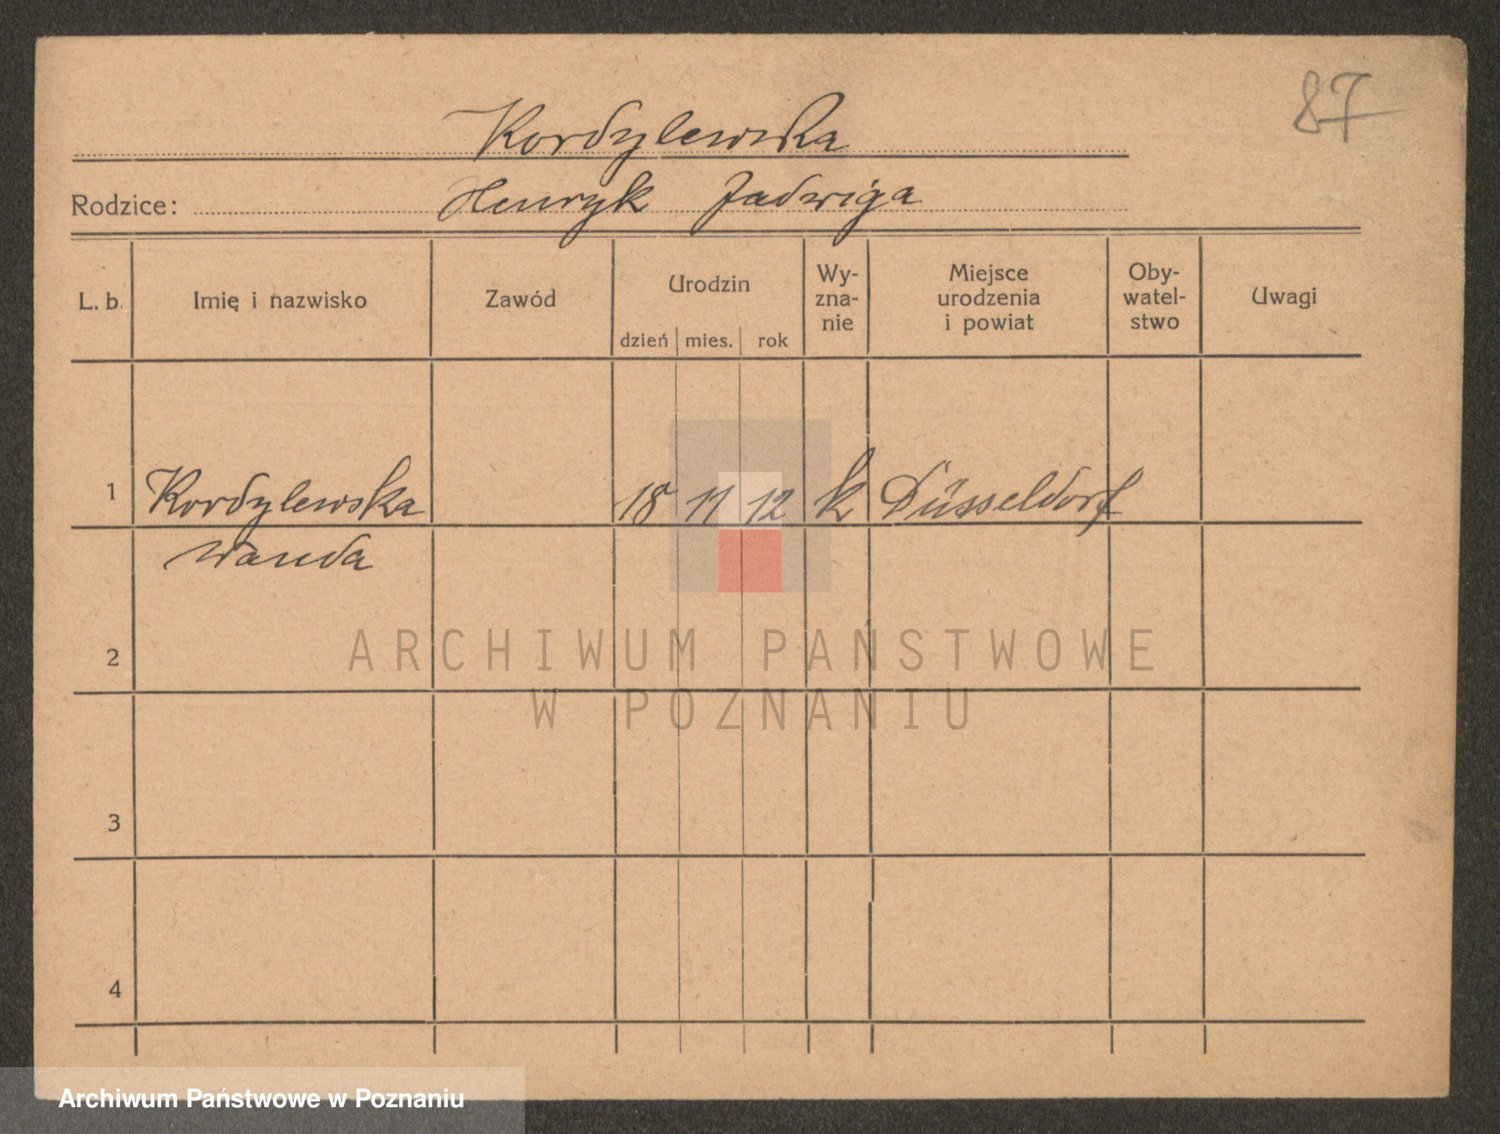 87
Kordylewska
Rodzice: Henryk Jadwiga
L. b. Imię i nazwisko Zawód Urodzin dzień mies. rok Wy-zna-nie Miejsce urodzenia i powiat Oby-watel-stwo Uwagi
1 Kordylewska 18 11 12 k Düsseldorf
Wanda
2
ARCHIWUM PAŃSTWOWE
W POZNANIU
3
4
Archiwum Państwowe w Poznaniu